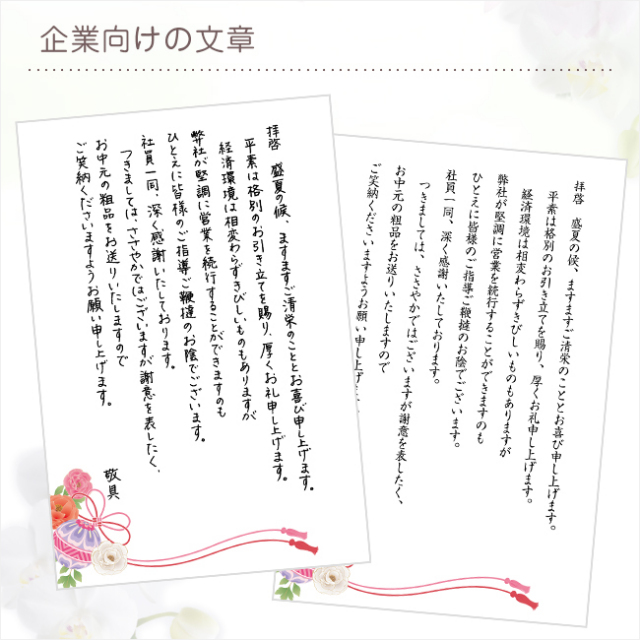 企業向けの文章
拝啓　盛夏の候、ますますご清栄のこととお喜び申し上げます。
平素は格別のお引き立てを賜り、厚くお礼申し上げます。
経済環境は相変わらずきびしいものもありますが
弊社が堅調に営業を続行することができますのも
ひとえに皆様のご指導ご鞭撻のお陰でございます。
社員一同、深く感謝いたしております。
つきましては、ささやかではございますが謝意を表したく、
お中元の粗品をお送りいたしますので
ご笑納くださいますようお願い申し上げます。
敬具
拝啓　盛夏の候、ますますご清栄のこととお喜び申し上げます。
平素は格別のお引き立てを賜り、厚くお礼申し上げます。
経済環境は相変わらずきびしいものもありますが
弊社が堅調に営業を続行することができますのも
ひとえに皆様のご指導ご鞭撻のお陰でございます。
社員一同、深く感謝いたしております。
つきましては、ささやかではございますが謝意を表したく、
お中元の粗品をお送りいたしますので
ご笑納くださいますようお願い申し上げ